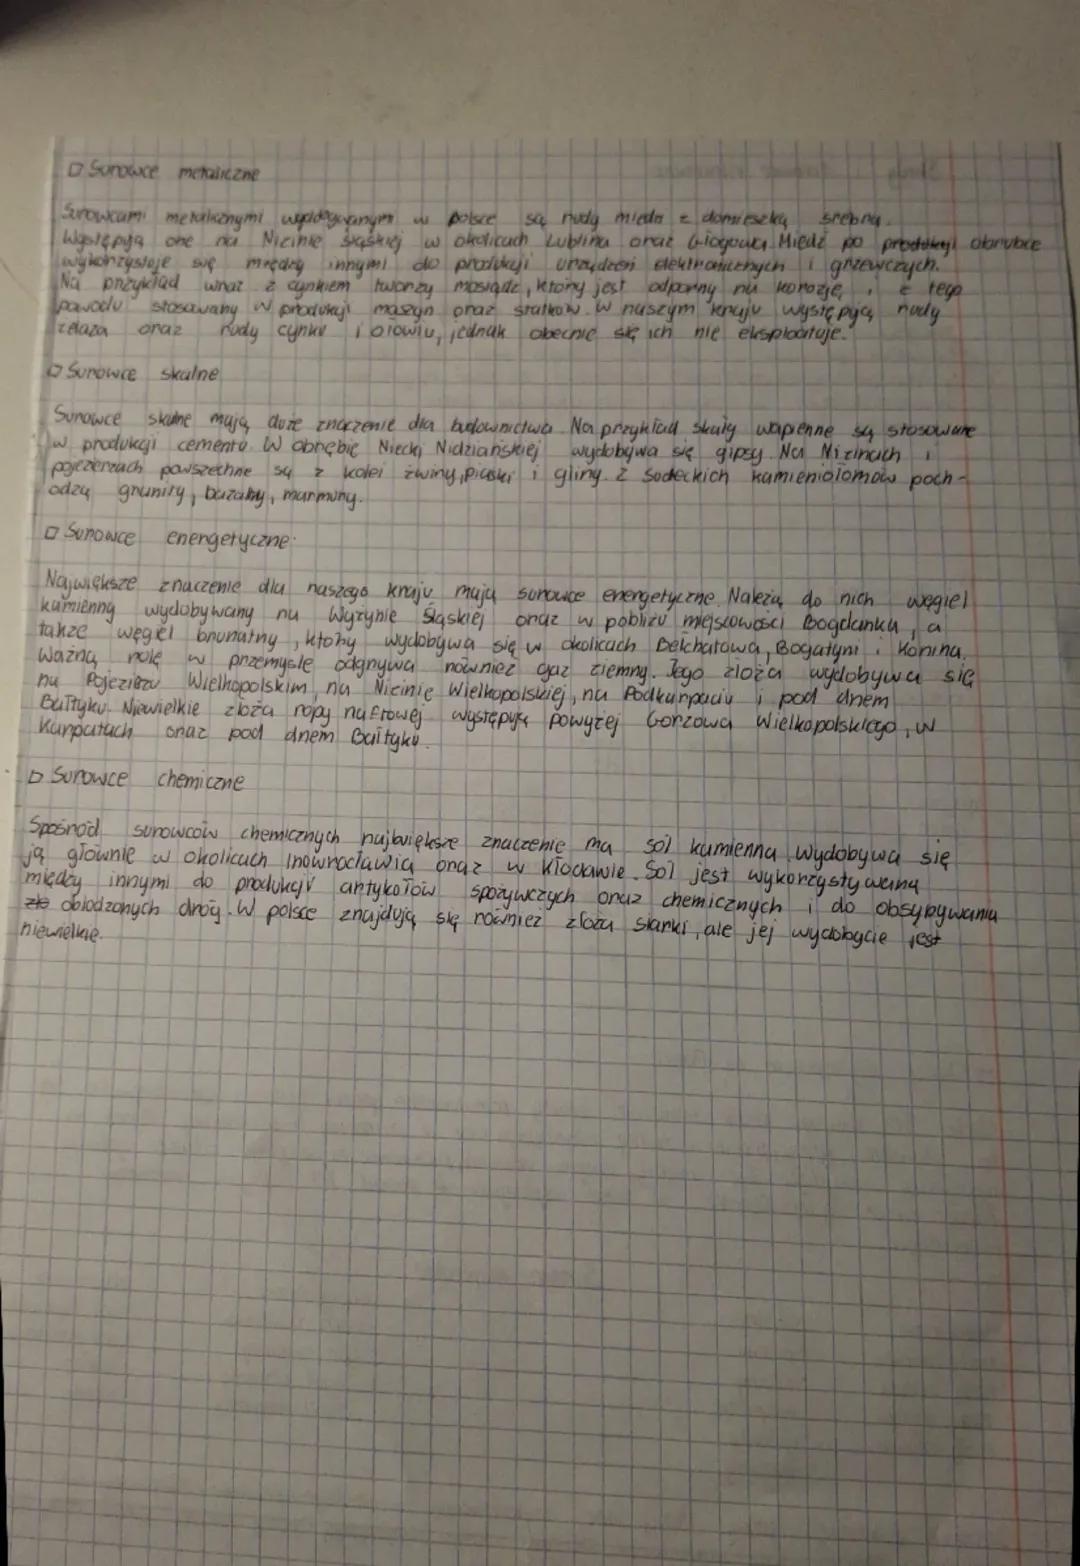 Surowce metaliczne
Surowcami metalicznymi wydobywanymi w Polsce są rudy miedzi z domieszką srebra.
Występują one na Nizinie Śląskiej w okolicach Lublina oraz Głogowa. Miedź po produkcji obrubce
wykorzystuje się między innymi do produkcji urządzeń elektronicznych i grzewczych.
Na przykład wraz z cynkiem tworzy mosiądz, który jest odporny na korozję, z tego
powodu stosowany w produkcji maszyn oraz statków. W naszym kraju występują rudy
żelaza oraz rudy cynku i ołowiu, jednak obecnie się ich nie eksploatuje.
Surowce skalne
Surowce skalne mają duże znaczenie dla budownictwa. Na przykład skały wapienne są stosowane
w produkcji cementu. W obrębie Niecki Nidziańskiej wydobywa się gipsy. Na Nizinach i
pojezierzach powszechne są z kolei żwiry, piaski i gliny. Z Sudeckich kamieniołomów poch-
odzą granity, bazalty, marmury.
Surowce energetyczne
Największe znaczenie dla naszego kraju mają surowce energetyczne. Należą do nich węgiel
kamienny wydobywany na Wyżynie Śląskiej oraz w pobliżu miejscowości Bogdanka, a
także węgiel brunatny, który wydobywa się w okolicach Bełchatowa, Bogatyni i Konina.
Ważną rolę w przemyśle odgrywa również gaz ziemny. Jego złoża wydobywa się
na Pojezierzu Wielkopolskim, na Nizinie Wielkopolskiej, na Podkarpaciu i pod dnem
Bałtyku. Niewielkie złoża ropy naftowej występują powyżej Gorzowa Wielkopolskiego, w
Karpatach oraz pod dnem Bałtyku.
Surowce chemiczne
Spośród surowców chemicznych największe znaczenie ma sól kamienna. Wydobywa się
ją głównie w okolicach Inowrocławia oraz w Kłodawie. Sól jest wykorzystywana
między innymi do produkcji artykułów spożywczych oraz chemicznych i do obsypywania
oblodzonych dróg. W polsce znajdują się również złoża siarki, ale jej wydobycie jest
niewielkie.